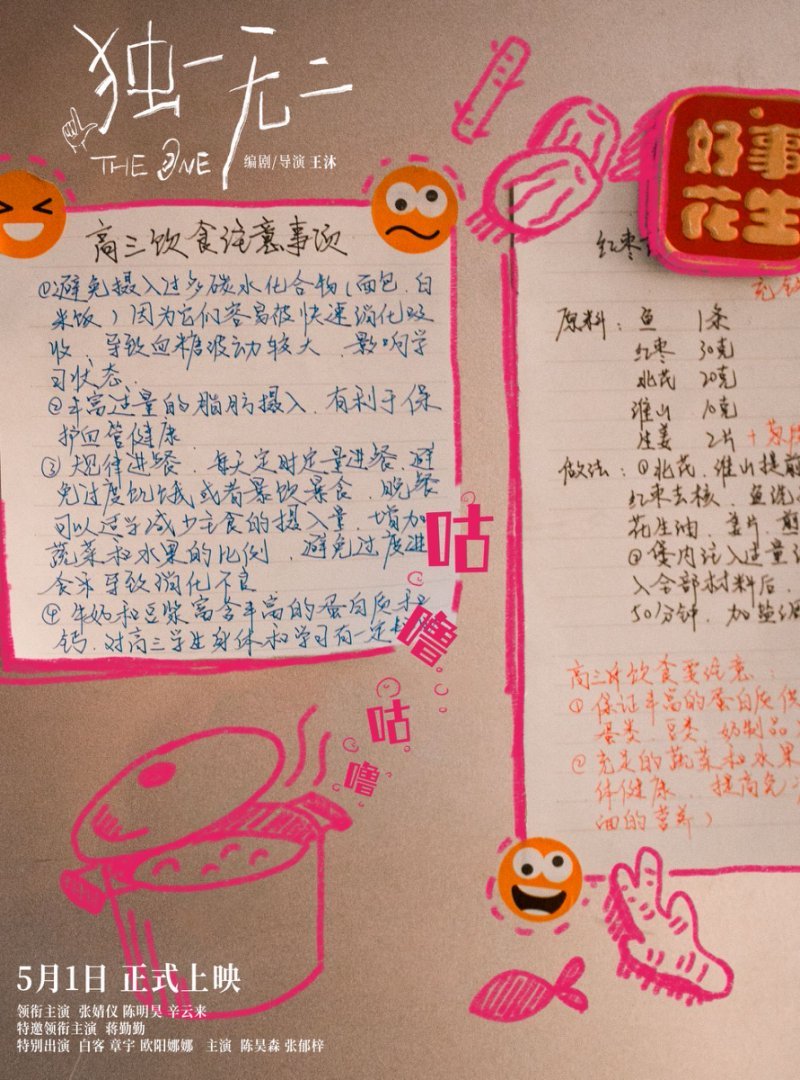 独一无二
THE ONE
编剧/导演 王沐
好事
花生
高三饮食注意事项
①避免摄入过多碳水化合物(面包、白
米饭)因为它们容易被快速消化吸
收、导致血糖波动较大、影响学
习状态、
②丰富过量的脂肪摄入、有利于保
护血管健康
③规律进餐、每天定时定量进餐、避
免过度饥饿或者暴饮暴食、晚餐
可以适当减少主食的摄入量、增加
蔬菜和水果的比例、避免过度进
食来导致消化不良
④牛奶和豆浆富含丰富的蛋白质和
钙、对高三学生身体和学习有一定
咕
噜
咕
噜
红枣
原料:鱼 1条
红枣 30克
北芪 20克
淮山 10克
生姜 2片
做法:①北芪、淮山提前
红枣去核、鱼洗
花生油、姜片、煎
②煲内注入适量
入全部材料后、
50分钟、加盐
高三生饮食要注意:
①保证丰富的蛋白质供
蛋类、豆类、奶制品
②充足的蔬菜和水果
体健康、提高免
油的营养)
5月1日 正式上映
领衔主演 张婧仪 陈明昊 辛云来
特邀领衔主演 蒋勤勤
特别出演 白客 章宇 欧阳娜娜 主演 陈昊森 张郁梓